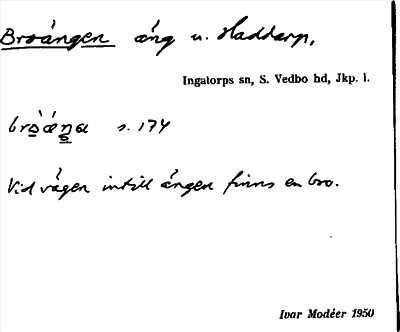 Broängen äng u. Haddarp.
Ingatorps sn, S. Vedbo hd, Jkp. l.
s. 174
Vid vägen intill ängen finns en bro.
Ivar Modéer 1950